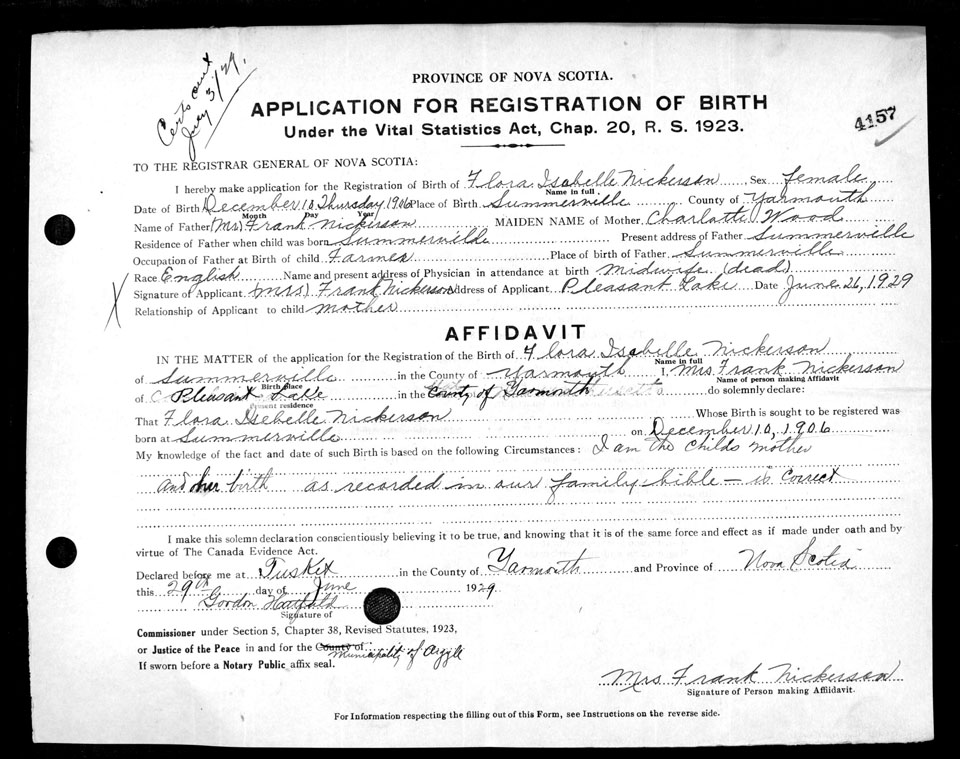 Certs out
July 3/29.
PROVINCE OF NOVA SCOTIA.
APPLICATION FOR REGISTRATION OF BIRTH
Under the Vital Statistics Act, Chap. 20, R. S. 1923.
4157
TO THE REGISTRAR GENERAL OF NOVA SCOTIA:
I hereby make application for the Registration of Birth of Flora Isabelle Nickerson Sex female
Name in full
Date of Birth December 10, Thursday, 1906 Place of Birth Summerville County of Yarmouth
Month Day Year
Name of Father (Mr) Frank Nickerson MAIDEN NAME of Mother Charlotte Wood
Residence of Father when child was born Summerville Present address of Father Summerville
Occupation of Father at Birth of child Farmer Place of birth of Father Summerville
Race English Name and present address of Physician in attendance at birth Midwife (dead)
X Signature of Applicant (Mrs) Frank Nickerson Address of Applicant Pleasant Lake Date June 26, 1929
Relationship of Applicant to child mother
AFFIDAVIT
IN THE MATTER of the application for the Registration of the Birth of Flora Isabelle Nickerson
Name in full
of Summerville in the County of Yarmouth I, Mrs Frank Nickerson
Birth place Name of person making Affidavit
of Pleasant Lake in the County of Yarmouth do solemnly declare:
Present residence
That Flora Isebelle Nickerson Whose Birth is sought to be registered was
born at Summerville on December 10, 1906
My knowledge of the fact and date of such Birth is based on the following Circumstances: I am the childs mother
and her birth as recorded in our family bible — is correct
I make this solemn declaration conscientiously believing it to be true, and knowing that it is of the same force and effect as if made under oath and by
virtue of The Canada Evidence Act.
Declared before me at Tusket in the County of Yarmouth and Province of Nova Scotia
this 29th day of June 1929.
Gordon Hatfield
Signature of
Commissioner under Section 5, Chapter 38, Revised Statutes, 1923,
or Justice of the Peace in and for the County of
Municipality of Argyle
If sworn before a Notary Public affix seal.
Mrs Frank Nickerson
Signature of Person making Affidavit.
For Information respecting the filling out of this Form, see Instructions on the reverse side.